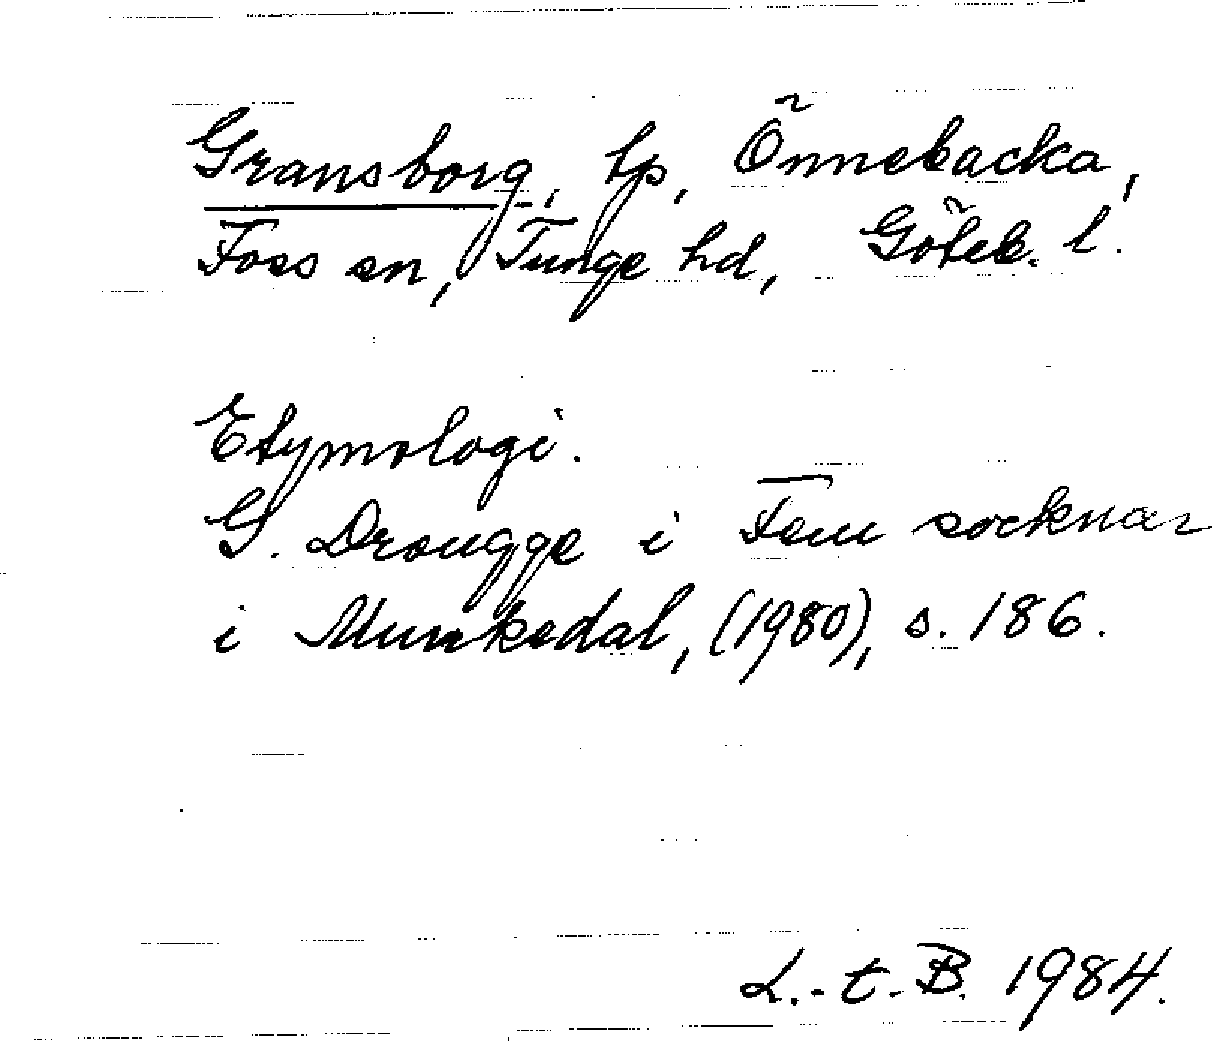 Gransborg, tp, Önnebacka,
Foss sn, Tunge hd, Göteb. l.
Etymologi.
G. Drougge i Fem socknar
i Munkedal, (1980), s. 186.
L.-t.-B. 1984.